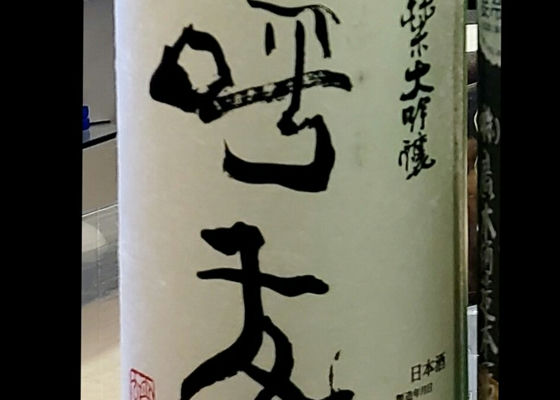 純米大吟醸
呼友
日本酒
製造年月日